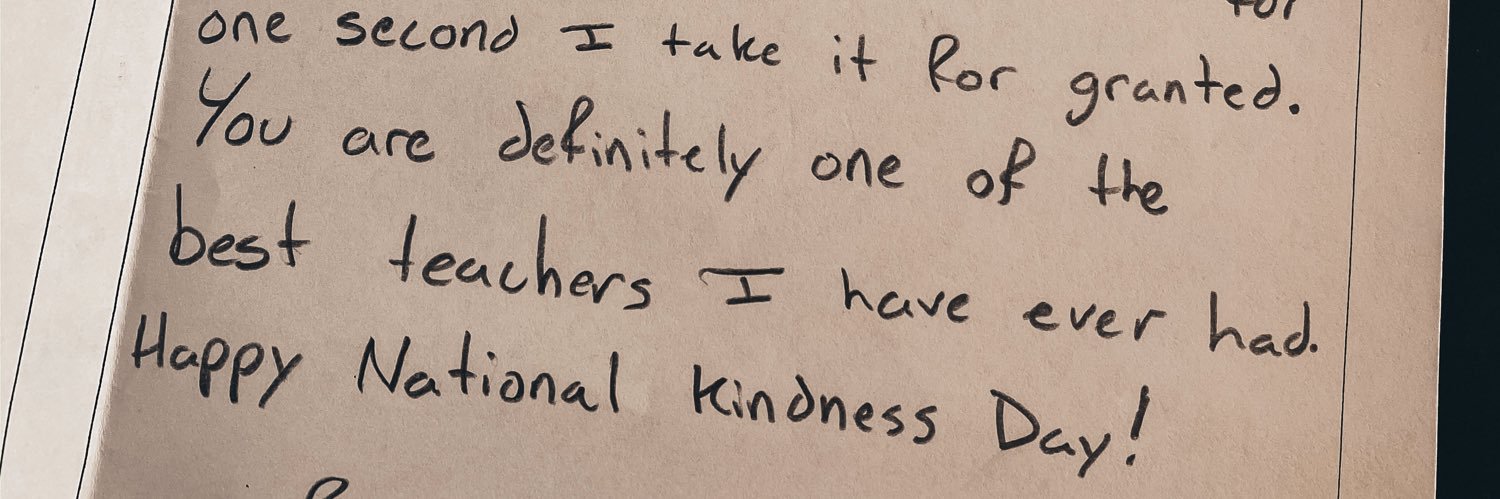 for
one second I take it for granted.
You are definitely one of the
best teachers I have ever had.
Happy National Kindness Day!